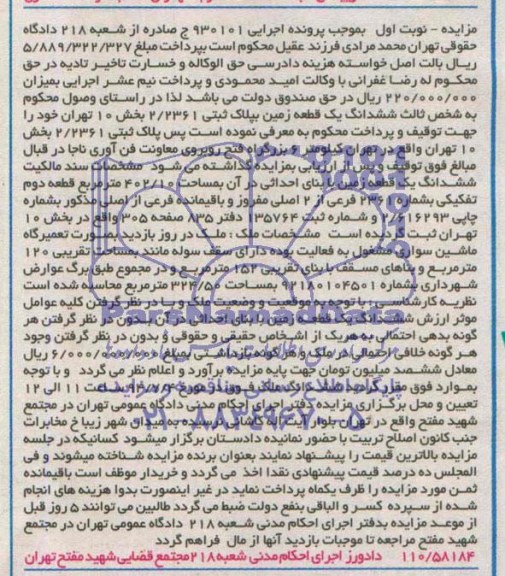 مزایده - نوبت اول بموجب پرونده اجرایی ۹۳۰۱۰۱ ج صادره از شعبه ۲۱۸ دادگاه
حقوقی تهران محمد مرادی فرزند عقیل محکوم است بپرداخت مبلغ ۵/۸۸۹/۳۲۲/۳۲۷
ریال بالت اصل خواسته هزینه دادرسی حق الوکاله و خسارت تاخیر تادیه در حق
محکوم له رضا غفرانی با وکالت امید محمودی و پرداخت نیم عشر اجرایی بمیزان
۲۲۰/۰۰۰/۰۰۰ ریال در حق صندوق دولت می باشد لذا در راستای وصول محکوم
به شخص ثالث ششدانگ یک قطعه زمین بپلاک ثبتی ۲/۲۳۶۱ بخش ۱۰ تهران خود را
جهت توقیف و پرداخت محکوم به معرفی نموده است پس پلاک ثبتی ۲/۲۳۶۱ بخش
۱۰ تهران واقع در تهران کیلومتر ۶ بزرگراه فتح روبروی معاونت فن آوری ناجا در قبال
مبالغ فوق توقیف و پس از ارزیابی بمزایده گذاشته می شود مشخصات سند مالکیت
ششدانگ یک قطعه زمین با بنای احداثی در آن بمساحت ۴۰۲/۱۰ مترمربع قطعه دوم
تفکیکی بشماره ۲۳۶۱ فرعی از ۲ اصلی مفروز و باقیمانده فرعی از اصلی مذکور بشماره
چاپی ۲/۶۱۶۲۹۳ و شماره ثبت ۱۳۵۷۶۴ دفتر ۸۳۵ صفحه ۳۰۵ واقع در بخش ۱۰
تهران ثبت گردیده است مشخصات ملک : ملک در روز بازدید بصورت تعمیرگاه
ماشین سواری مشغول به فعالیت بوده دارای سقف سوله مانند بمساحت تقریبی ۱۲۰
مترمربع و بناهای مسقف با بنای تقریبی ۱۵۲ مترمربع و در مجموع طبق برگ عوارض
شهرداری بشماره ۹۲۱۸۰۱۰۴۵۰۱ بمساحت ۳۲۴/۵۰ مترمربع محاسبه شده است
نظریه کارشناسی : با توجه به موقعیت و وضعیت ملک و با در نظر گرفتن کلیه عوامل
موثر ارزش ششدانگ یک قطعه زمین با بنای احداثی در آن بدون در نظر گرفتن هر
گونه بدهی احتمالی به هر یک از اشخاص حقیقی و حقوقی و بدون در نظر گرفتن وجود
هر گونه خلافی احتمالی در ملک و هر گونه بازداشتی بمبلغ ۶/۰۰۰/۰۰۰/۰۰۰ ریال
معادل ششصد میلیون تومان جهت پایه مزایده برآورد و اعلام نظر می گردد و با توجه
بموارد فوق مقرر گردید ششدانگ ملک فوق در مورخ ساعت ۱۱ الی ۱۲
تعیین و محل برگزاری مزایده دفتر اجرای احکام مدنی دادگاه عمومی تهران در مجتمع
شهید مفتح واقع در تهران بلوار آیت اله کاشانی نرسیده به میدان شهر زیبا خ مخابرات
جنب کانون اصلاح تربیت با حضور نماینده دادستان برگزار میشود کسانیکه در جلسه
مزایده بالاترین قیمت را پیشنهاد نمایند بعنوان برنده مزایده شناخته میشوند و فی
المجلس ده درصد قیمت پیشنهادی نقدا اخذ می گردد و خریدار موظف است باقیمانده
ثمن مورد مزایده را ظرف یکماه پرداخت نماید در غیر اینصورت بدوا هزینه های انجام
شده از سپرده کسر و الباقی بنفع دولت ضبط می گردد طالبین می توانند ۵ روز قبل
از موعد مزایده بدفتر اجرای احکام مدنی شعبه ۲۱۸ دادگاه عمومی تهران در مجتمع
شهید مفتح مراجعه تا موجبات بازدید آنها از مال فراهم گردد
۱۱۰/۵۸۱۸۴ دادورز اجرای احکام مدنی شعبه ۲۱۸ مجتمع قضایی شهید مفتح تهران
ParsNamadData
۰۲۱-۸۸۳۴۹۶۷۰-۵